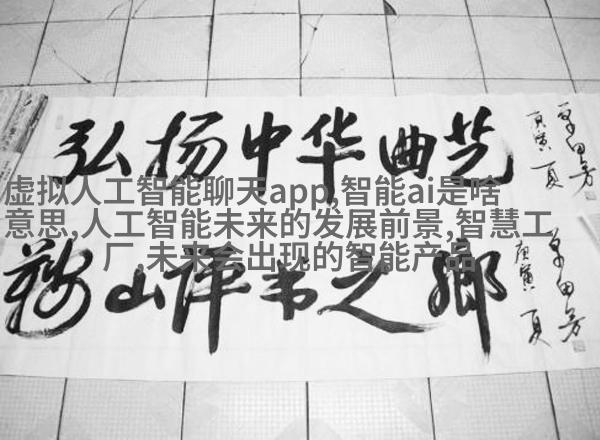 弘扬中华曲艺
庚寅夏
单田芳
虚拟人工智能聊天app,智能ai是啥
意思,人工智能未来的发展前景,智慧工
厂,未来会出现的智能产品
鞍山评书之鄉
庚寅夏
单田芳